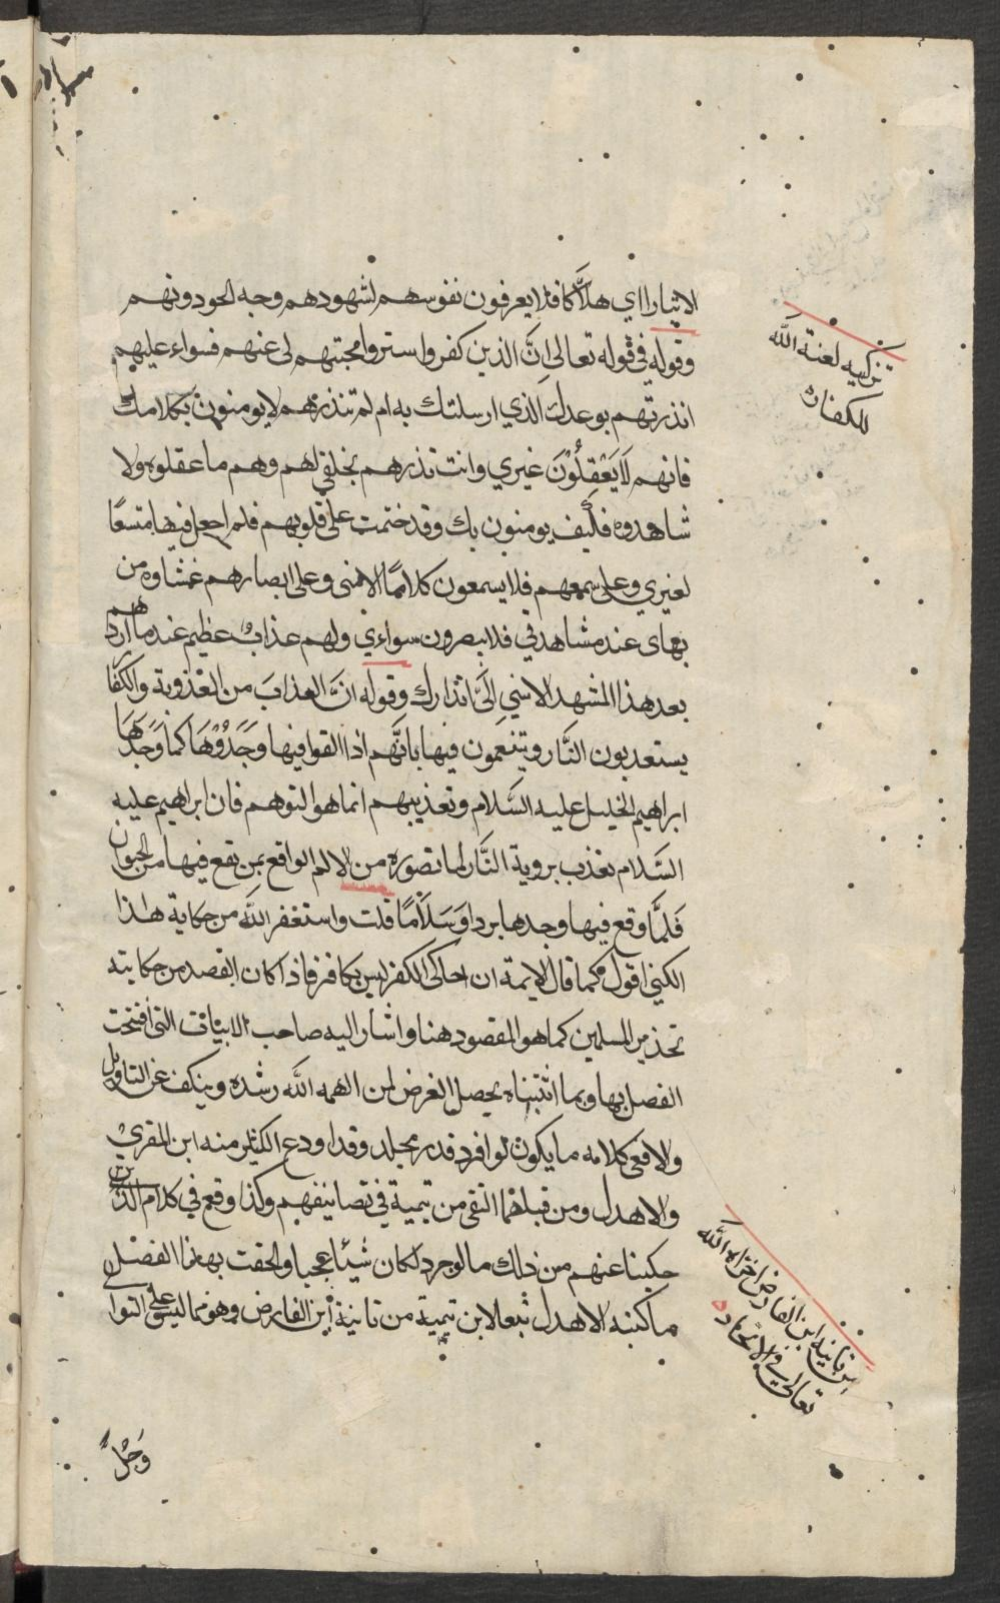 الا تبارا اي هلاكا فلا يعرفون نفوسهم لشهودهم وجه الحق دونهم
وقوله في قوله تعالى اِنَّ الذين كفروا ستروا محبتهم لي عنهم فسواء عليهم
انذرتهم بوعدك الذي ارسلتك به ام لم تنذرهم لا يومنون بكلامك
فانهم لَا يَعْقِلُوْنَ غيري وانت تذرهم بخلقي لهم وهم ما عقلوه ولا
شاهدوه فكَيف يومنون بك وقد ختمت على قلوبهم فلم اجعل فيها متسعًا
لغيري وعلى سمعهم فلا يسمعون كلامًا الا مني وعلى ابصارهم غشاوه من
بهاى عند مشاهدتي فلا يبصرون سواءي ولهم عذاب عظيم عندي ما هم اردهم
بعد هذا المشهد الاسني الَىَّ انذارك وقوله انَّ العذابَ من العذوبة والكفّا
يستعذبون النَّار ويتنعمون فيها باَنَّهم اذا القوا فيها وَجَدُوْهَا كما وَجَدَهَا
ابراهيم الخليل عليه السَّلام وتعذيبهم انما هو التوهم فان ابراهيم عليه
السَّلام تعذب بروية النَّار لما تصوره من الالم الواقع بمن يقع فيها من الحيوان
فَلمَّا وقع فيها وجدها بردا وَسَلَامًا قلت واستغفر الله من حكاية هذا
لكني اقول كما قال الايمة ان احاكى الكفر ليس بكافر فاذا كان القصد من حكايته
تحذير المسلمين كما هو المقصود هنا واشار اليه صاحب الابيات التي افتتحت
الفصل بها وبما اثبتناه يحصل الغرض لمن الهمه الله رشده وينكف عن التاويل
والا فعى كلامه ما يكون لو افرد قدر مجلد وقد اودع الكثير منه ابن المقري
والاهدل ومن قبلهما التقى من تيمية في تصانيفهم وكذا وقع في كلام الذين
حكينا عنهم من ذلك ما لو جرد لكان شيئا عجبا والحقت بهذا الفصل
ما كتبه الاهدل تبعا لابن تيمية من تائية ابن الفارض وهو مما ليس على التوالي
تزكيه لعنة الله
للكفار
من تائية ابن الفارض اخزاه الله
تعالى في الاتحاد
وَحُلَّ